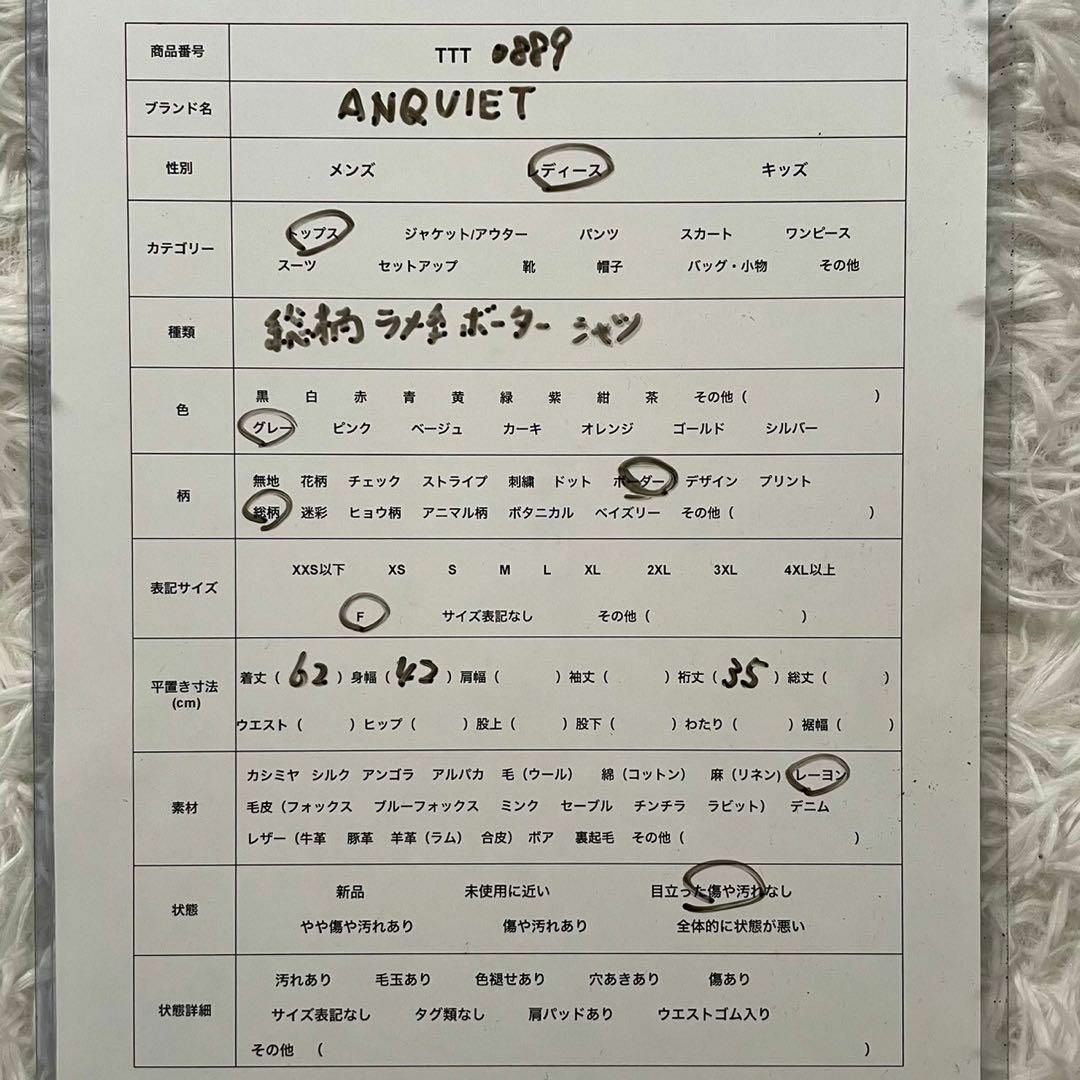 商品番号 TTT 0889
ブランド名 ANQUIET
性別 メンズ レディース キッズ
カテゴリー トップス ジャケット/アウター パンツ スカート ワンピース
スーツ セットアップ 靴 帽子 バッグ・小物 その他
種類 総柄 ラメ金 ボーダー シャツ
色 黒 白 赤 青 黄 緑 紫 紺 茶 その他( )
グレー ピンク ベージュ カーキ オレンジ ゴールド シルバー
柄 無地 花柄 チェック ストライプ 刺繍 ドット ボーダー デザイン プリント
総柄 迷彩 ヒョウ柄 アニマル柄 ボタニカル ペイズリー その他( )
表記サイズ XXS以下 XS S M L XL 2XL 3XL 4XL以上
F サイズ表記なし その他( )
平置き寸法 (cm) 着丈( 62 )身幅( 42 )肩幅( )袖丈( )裄丈( 35 )総丈( )
ウエスト( )ヒップ( )股上( )股下( )わたり( )裾幅( )
素材 カシミヤ シルク アンゴラ アルパカ 毛(ウール) 綿(コットン) 麻(リネン) レーヨン
毛皮(フォックス ブルーフォックス ミンク セーブル チンチラ ラビット) デニム
レザー(牛革 豚革 羊革(ラム) 合皮) ボア 裏起毛 その他( )
状態 新品 未使用に近い 目立った傷や汚れなし
やや傷や汚れあり 傷や汚れあり 全体的に状態が悪い
状態詳細 汚れあり 毛玉あり 色褪せあり 穴あきあり 傷あり
サイズ表記なし タグ類なし 肩パッドあり ウエストゴム入り
その他 ( )